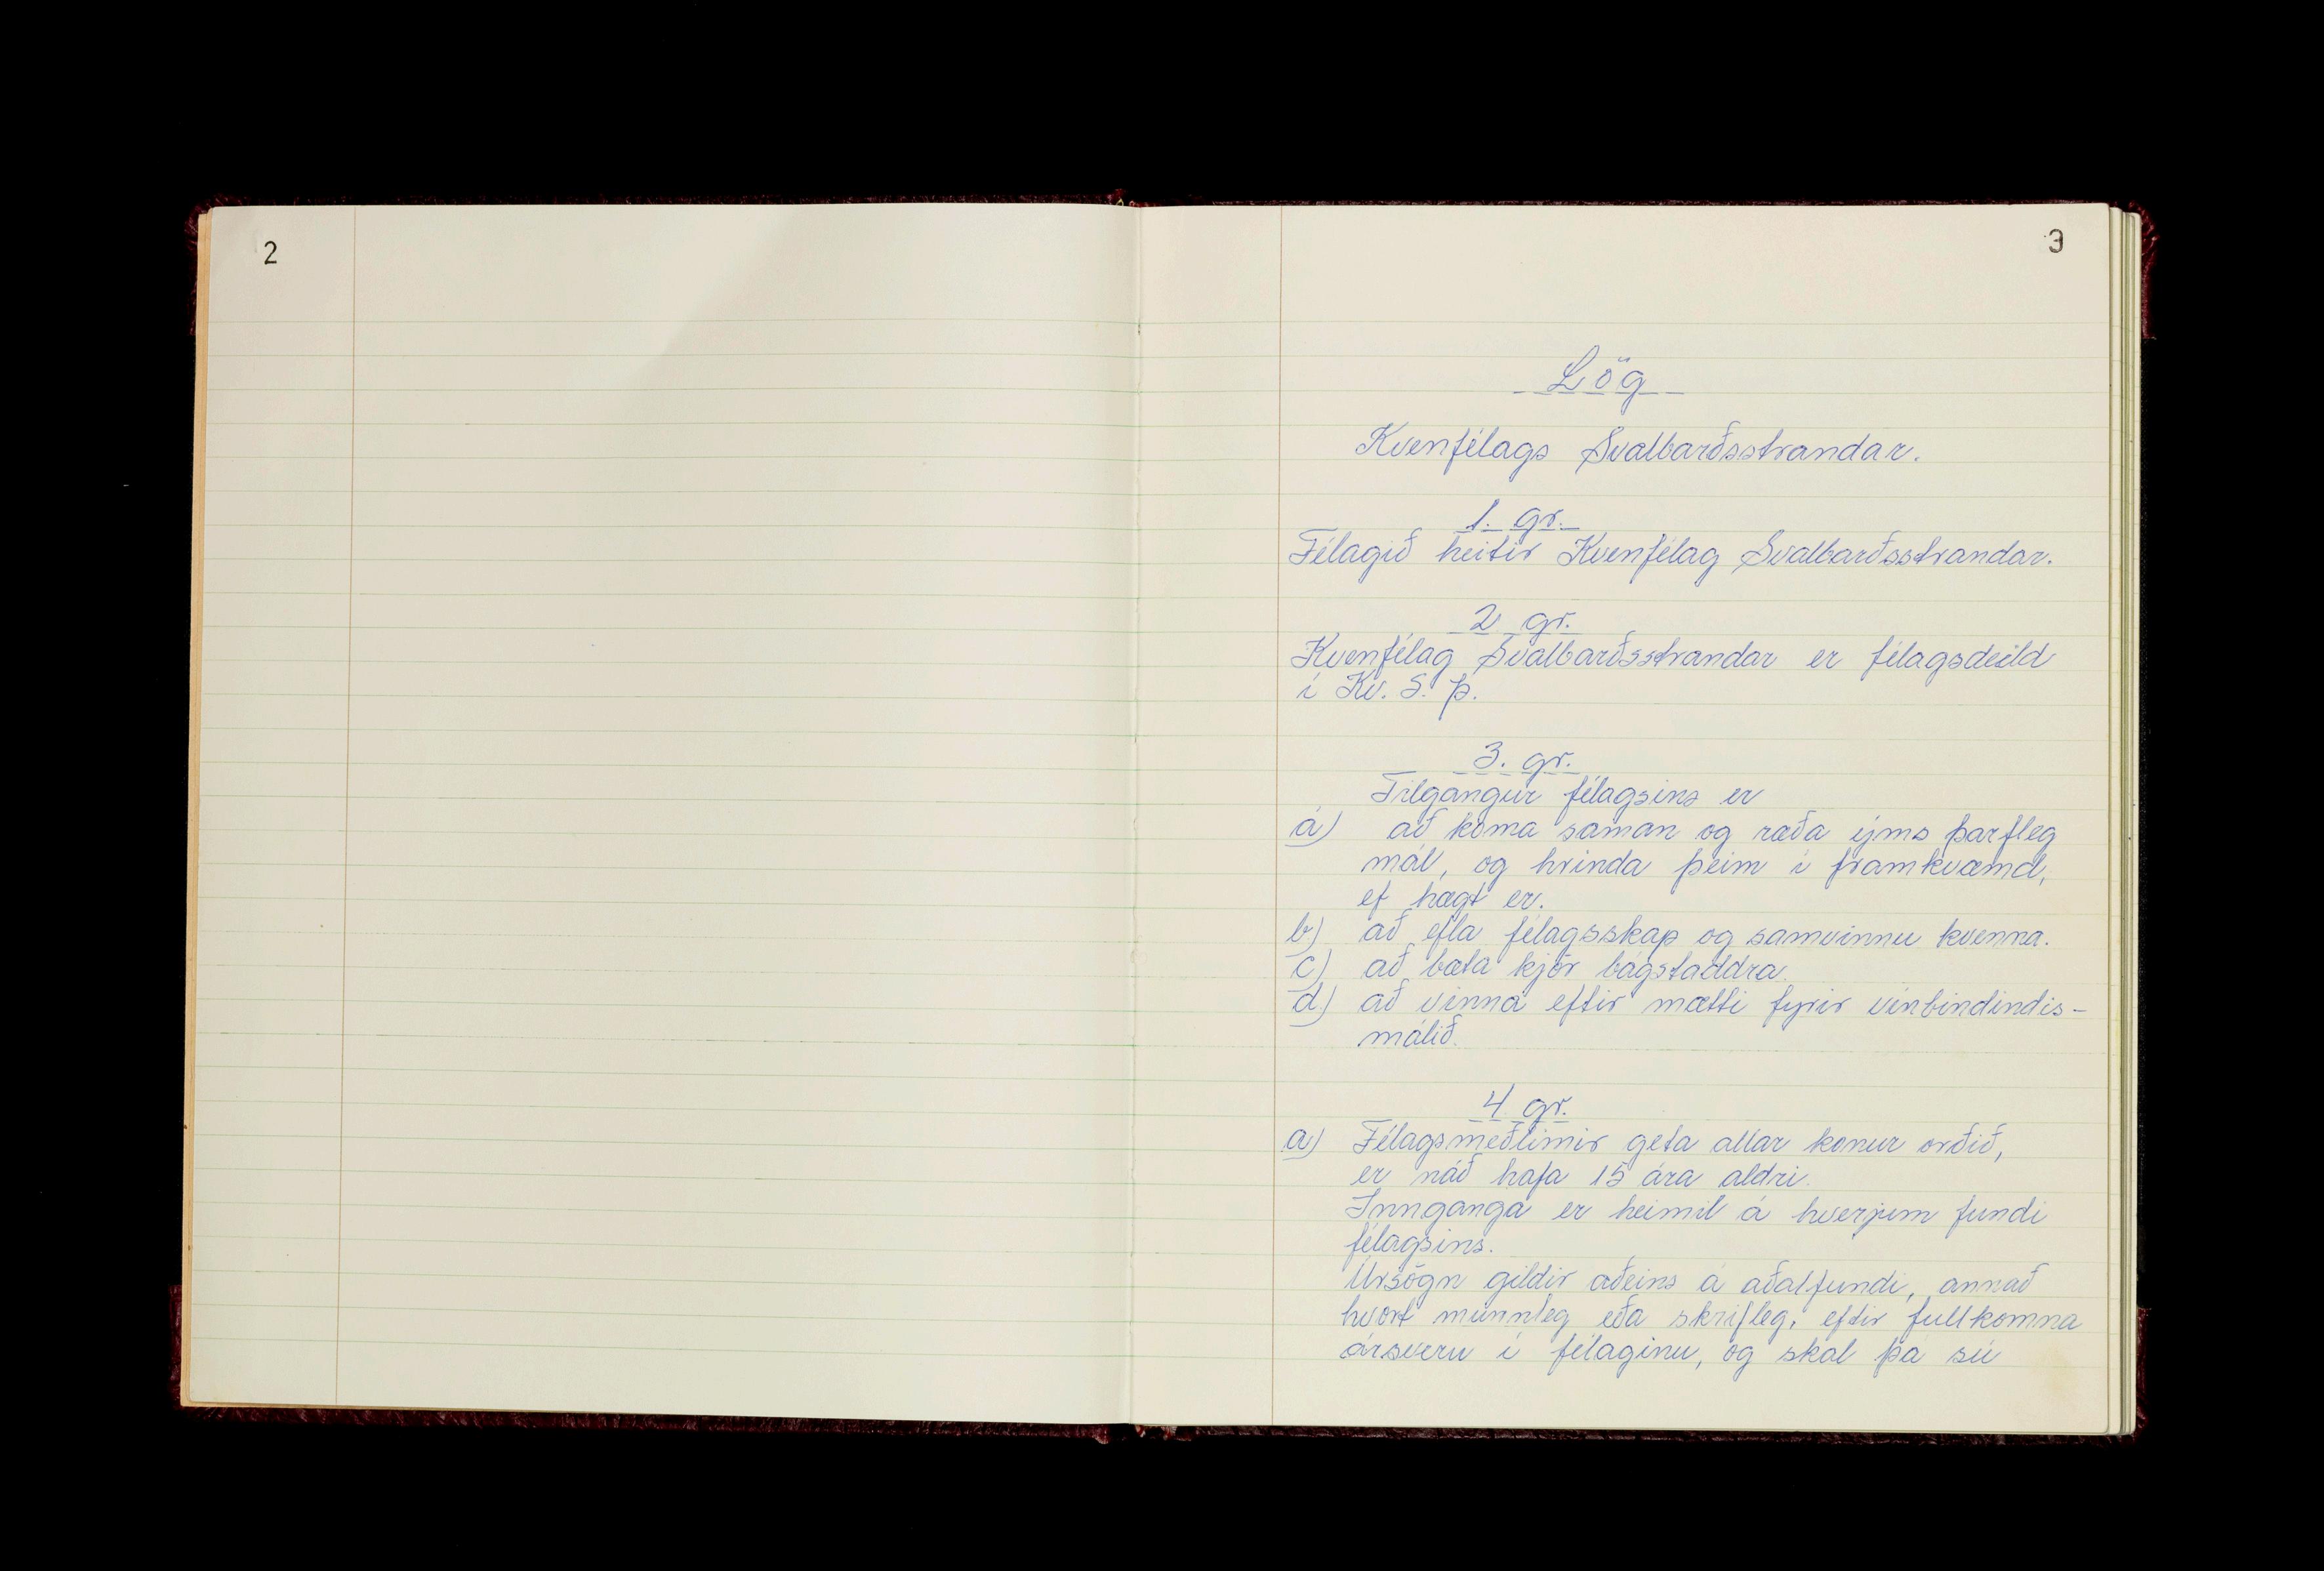 2
3
Lög
Kvenfélags Svalbarðsstrandar.
1. gr.
Félagið heitir Kvenfélag Svalbarðsstrandar.
2 gr.
Kvenfélag Svalbarðsstrandar er félagsdeild
í Kv. S. Þ.
3. gr.
Tilgangur félagsins er
a) að koma saman og ræða ýms þarfleg
mál, og hrinda þeim í framkvæmd,
ef hægt er.
b) að efla félagsskap og samvinnu kvenna.
c) að bæta kjör bágstaddra.
d) að vinna eftir mætti fyrir vínbindindis-
málið.
4. gr.
a) Félagsmeðlimir geta allar konur orðið,
er náð hafa 15 ára aldri.
Innganga er heimil á hverjum fundi
félagsins.
Úrsögn gildir aðeins á aðalfundi, annað
hvort munnleg eða skrifleg, eftir fullkomna
ársveru í félaginu, og skal þá sú